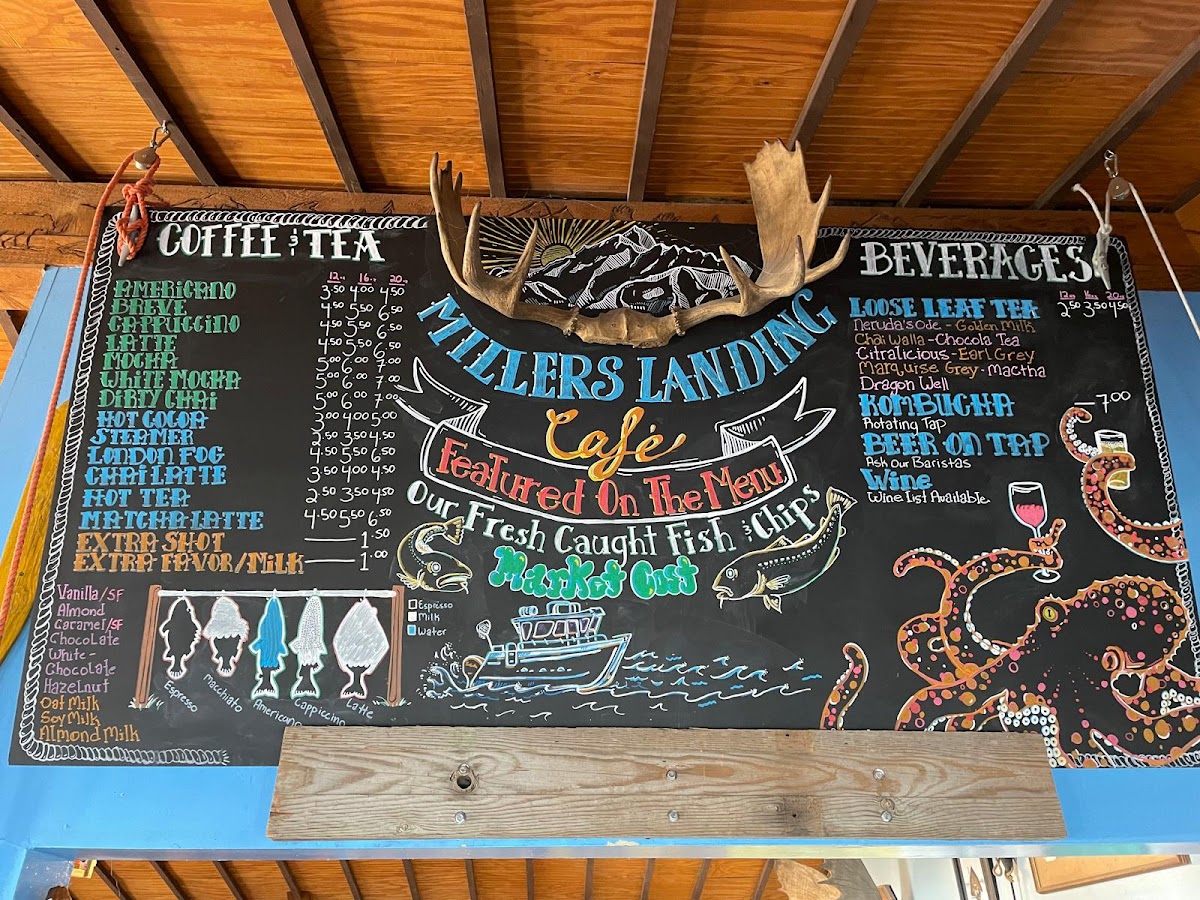 COFFEE & TEA
12oz 16oz 20oz
AMERICANO 3.50 4.00 4.50
BREVE 4.50 5.50 6.50
CAPPUCCINO 4.50 5.50 6.50
LATTE 4.50 5.50 6.50
MOCHA 5.00 6.00 7.00
WHITE MOCHA 5.00 6.00 7.00
DIRTY CHAI 5.00 6.00 7.00
HOT COCOA 3.00 4.00 5.00
STEAMER 2.50 3.50 4.50
LONDON FOG 4.50 5.50 6.50
CHAI LATTE 3.50 4.00 4.50
HOT TEA 2.50 3.50 4.50
MATCHA LATTE 4.50 5.50 6.50
EXTRA SHOT — 1.50
EXTRA FAVOR/MILK — 1.00
Vanilla/SF
Almond
Caramel/SF
Chocolate
White -
Chocolate
Hazelnut
Oat Milk
Soy Milk
Almond Milk
Espresso
Macchiato
Americano
Cappiccino
Latte
Espresso
Milk
Water
MILLERS LANDING
Café
Featured On The Menu
Our Fresh Caught Fish & Chips
Market Cost
BEVERAGES
12oz 16oz 20oz
LOOSE LEAF TEA 2.50 3.50 4.50
Neruda's Ode - Golden Milk
Chai Walla - Chocola Tea
Citralicious - Earl Grey
Marquise Grey - Matcha
Dragon Well
KOMBUCHA — 7.00
Rotating Tap
BEER ON TAP
Ask Our Baristas
Wine
Wine List Available